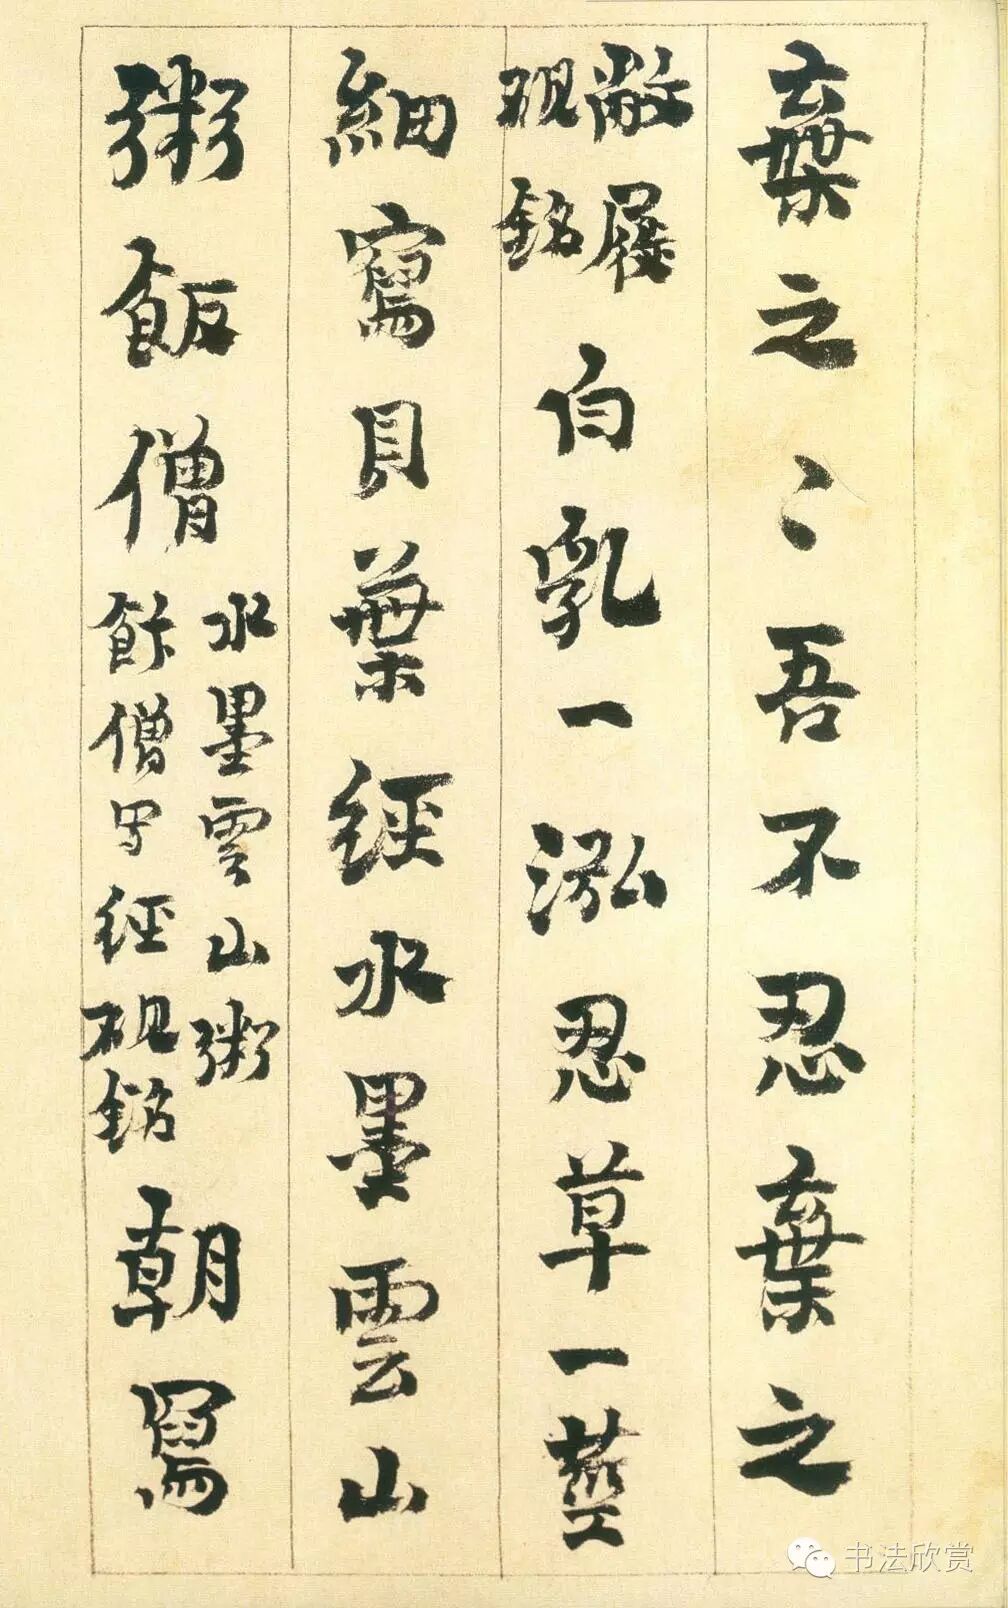 棄之〻吾不忍棄之
敝履
硯銘
白乳一泓忍草一莖
細寫貝葉經水墨雲山
粥飯僧
水墨雲山粥
飯僧写經硯銘
朝寫
书法欣赏